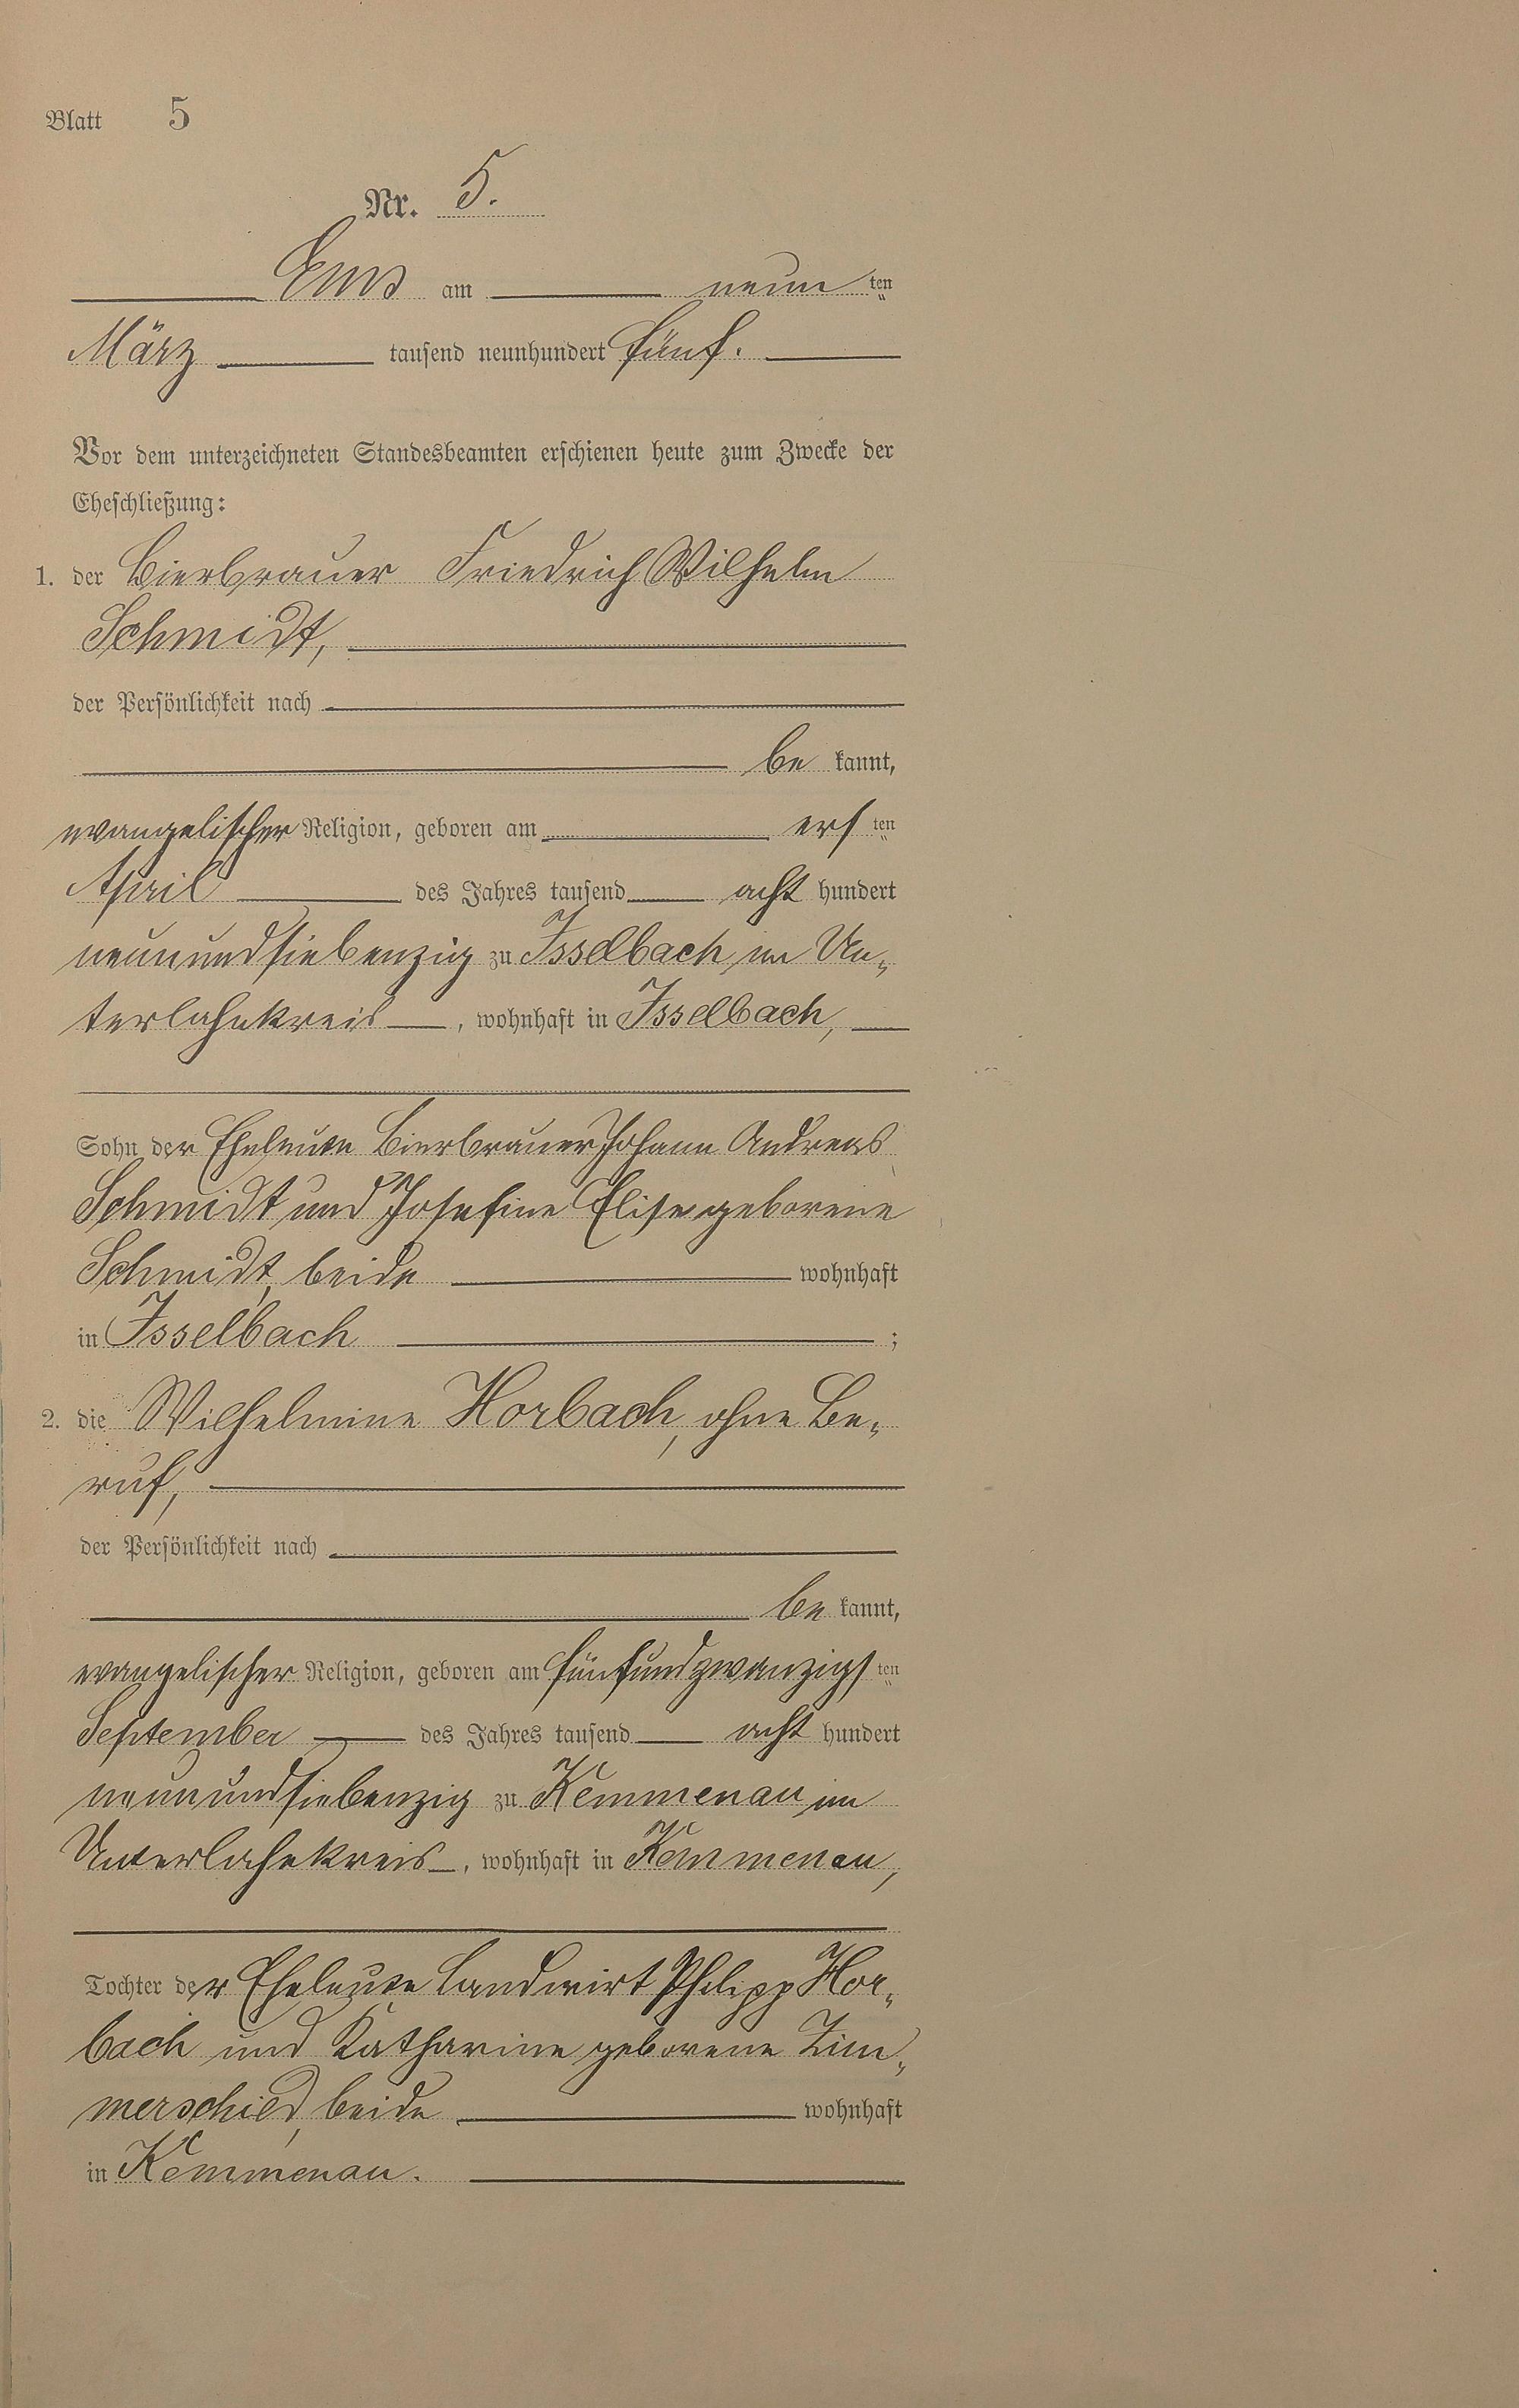 Blatt 5
Nr. 5.
Ems am neunten
März tausend neunhundert fünf.
Vor dem unterzeichneten Standesbeamten erschienen heute zum Zwecke der
Eheschließung:
1. der Bierbrauer Friedrich Wilhelm
Schmidt,
der Persönlichkeit nach
be kannt,
evangelischer Religion, geboren am ersten
April des Jahres tausend acht hundert
neunundsiebenzig zu Isselbach im Un„
terlahnkreis, wohnhaft in Isselbach,
Sohn der Eheleute Bierbrauer Johann Andreas
Schmidt und Josefine Elise geborene
Schmidt, beide wohnhaft
in Isselbach ;
2. die Wilhelmine Horbach, ohne Be„
ruf,
der Persönlichkeit nach
be kannt,
evangelischer Religion, geboren am fünfundzwanzigsten
September des Jahres tausend acht hundert
neunundsiebenzig zu Kemmenau im
Unterlahnkreis, wohnhaft in Kemmenau,
Tochter der Eheleute Landwirt Philipp Hor„
bach und Katharine geborene Zim„
merschied, beide wohnhaft
in Kemmenau.